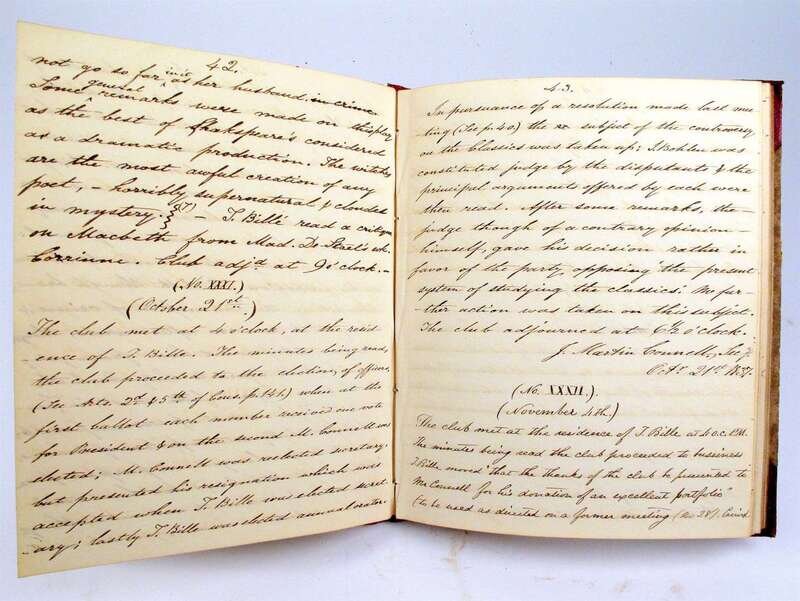 42.
not go so far in it as her husband in crime
Some general remarks were made on this play
as the best of Shakspeare's considered
as a dramatic production. The witches
are the most awful creation of any
poet, – horribly supernatural & clouded
in mystery. (T) – T. Bille read a critique
on Macbeth from Mad. De Stael's
Corrinne. Club adjd. at 9 o'clock. –
(No. XXXI.)
(October 21st.)
The club met at 4 o'clock, at the resid
-ence of T. Bille. The minutes being read,
the club proceeded to the election, of officers,
(See Arts. 2d & 5th of Cons. p. 141.) when at the
first ballot each member received one vote
for President & on the second M. Connell was
elected; M. Connell was reelected secretary
but presented his resignation which was
accepted when T. Bille was elected secret
-ary; lastly T. Bille was elected annual orator.
43.
In pursuance of a resolution made last mee
ting (See p. 40.) the subject of the controversy
on the Classics was taken up: J. Bohlen was
constituted judge by the disputants & the
principal arguments offered by each were
then read. After some remarks, the
judge though of a contrary opinion
himself, gave his decision rather in
favor of the party, opposing "the present
system of studying the classics. No fur-
ther action was taken on this subject.
The club adjourned at 6½ o'clock.
J. Martin Connell, Secy
Oct. 21st 1837
(No. XXXII.)
(November 4th.)
The club met at the residence of T. Bille at 4 o.c. P.M.
The minutes being read the club proceeded to bussiness
T. Bille moved "that the thanks of the club be presented to
M. Connell for his donation of an excellent portfolio"
(to be used as directed on a former meeting (No 28). Carried